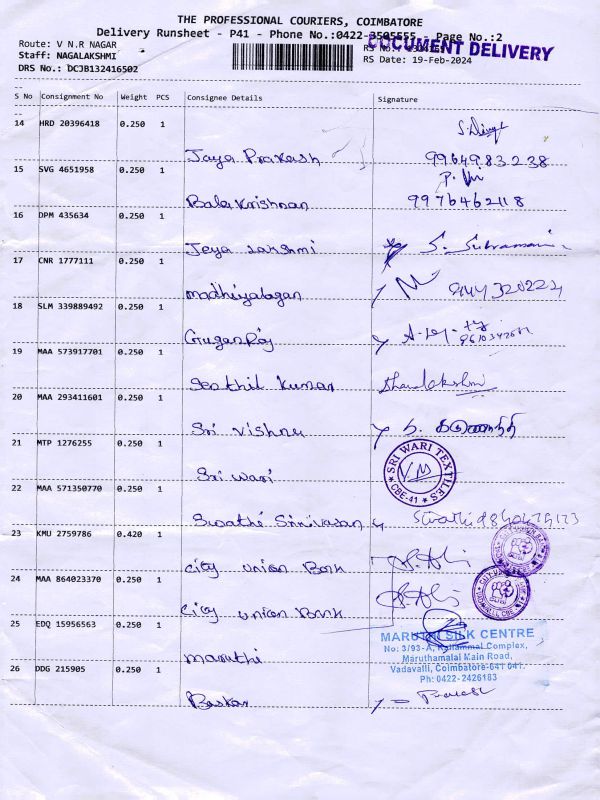 THE PROFESSIONAL COURIERS, COIMBATORE
Delivery Runsheet - P41 - Phone No.:0422-3505555 - Page No.:2
DOCUMENT DELIVERY
Route: V N.R NAGAR
Staff: NAGALAKSHMI
RS Date: 19-Feb-2024
DRS No.: DCJB132416502
S No Consignment No Weight PCS Consignee Details Signature
14 HRD 20396418 0.250 1 Jaya Prakash 9964983238
15 SVG 4651958 0.250 1 Bala Krishnan 9976462118
16 DPM 435634 0.250 1 Jeya Lakshmi S. Subramani
17 CNR 1777111 0.250 1 Madhiyalagan
18 SLM 339889492 0.250 1 GuganRaj
19 MAA 573917701 0.250 1 Senthil Kumar dhanalakshmi
20 MAA 293411601 0.250 1 Sri Vishnu
21 MTP 1276255 0.250 1 Sri wari
SRI WARI TEXTILES
CBE-41
22 MAA 571350770 0.250 1 Swathi Srinivasan
23 KMU 2759786 0.420 1 City union Bank
24 MAA 864023370 0.250 1 City union Bank
25 EDQ 15956563 0.250 1 maruthi
MARUTHI SILK CENTRE
No: 3/93-A, Kallammal Complex,
Maruthamalai Main Road,
Vadavalli, Coimbatore-641 041.
Ph: 0422-2426183
26 DDG 215905 0.250 1 Baskar